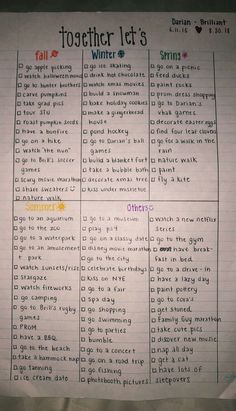 Darian + Brilliant
together let's
fall
□ go apple picking
□ watch halloween movies
□ go to hunter brothers
□ carve pumpkins
□ take grad pics
□ tour SFU
□ roast pumpkin seeds
□ have a bonfire
□ go on a hike
□ watch "the nun"
□ go to Brill's soccer
games
□ scary movie marathon
□ share sweaters
□ nature walk
Winter
□ go ice skating
□ drink hot chocolate
□ watch xmas movies
□ build a snowman
□ bake holiday cookies
□ make a gingerbread
house
□ pond hockey
□ go to Darian's ball
games
□ build a blanket fort
□ take a bubble bath
□ decorate xmas tree
□ kiss under misletoe
Spring
□ go on a picnic
□ feed ducks
□ paint rocks
□ prom dress shopping
□ go to Darian's
vball games
□ decorate easter eggs
□ find four leaf clovers
□ go for a walk in the
rain
□ nature walk
□ paint
□ fly a kite
Summer
□ go to an aquarium
□ go to the zoo
□ go to a waterpark
□ go to an amusement
park
□ watch sunsets/rises
□ stargaze
□ watch fireworks
□ go camping
□ go to Brill's rugby
games
□ PROM
□ have a BBQ
□ go to the beach
□ take a hammock nap
□ go tanning
□ ice cream date
Others
□ go to a museum
□ play
□ go on a classy date
□ disney movie marathon
□ go to the city
□ celebrate birthdays
□ kiss on NYE
□ go to a fair
□ spa day
□ go shopping
□ go swimming
□ go to parties
□ bumble
□ go to a concert
□ go on a road trip
□ go fishing
□ photobooth pictures
□ watch a new netflix
series
□ go to the gym
□ have break-
fast in bed
□ go to a drive-in
□ have a lazy day
□ paint pottery
□ go to cora's
□ get stoned
□ Family Guy marathon
□ take cute pics
□ discover new music
□ nap all day
□ get a cat
□ have lots of
sleepovers